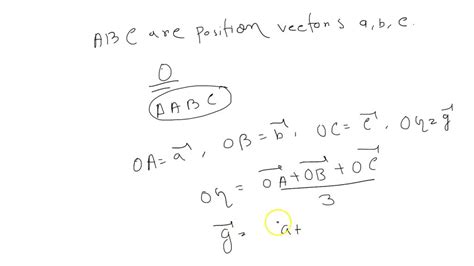 ABC are position vectors a, b, c.
O
△ABC
OA = a⃗, OB = b⃗, OC = c⃗, OG = g⃗
OG = (O⃗A + O⃗B + O⃗C) / 3
g⃗ = a+